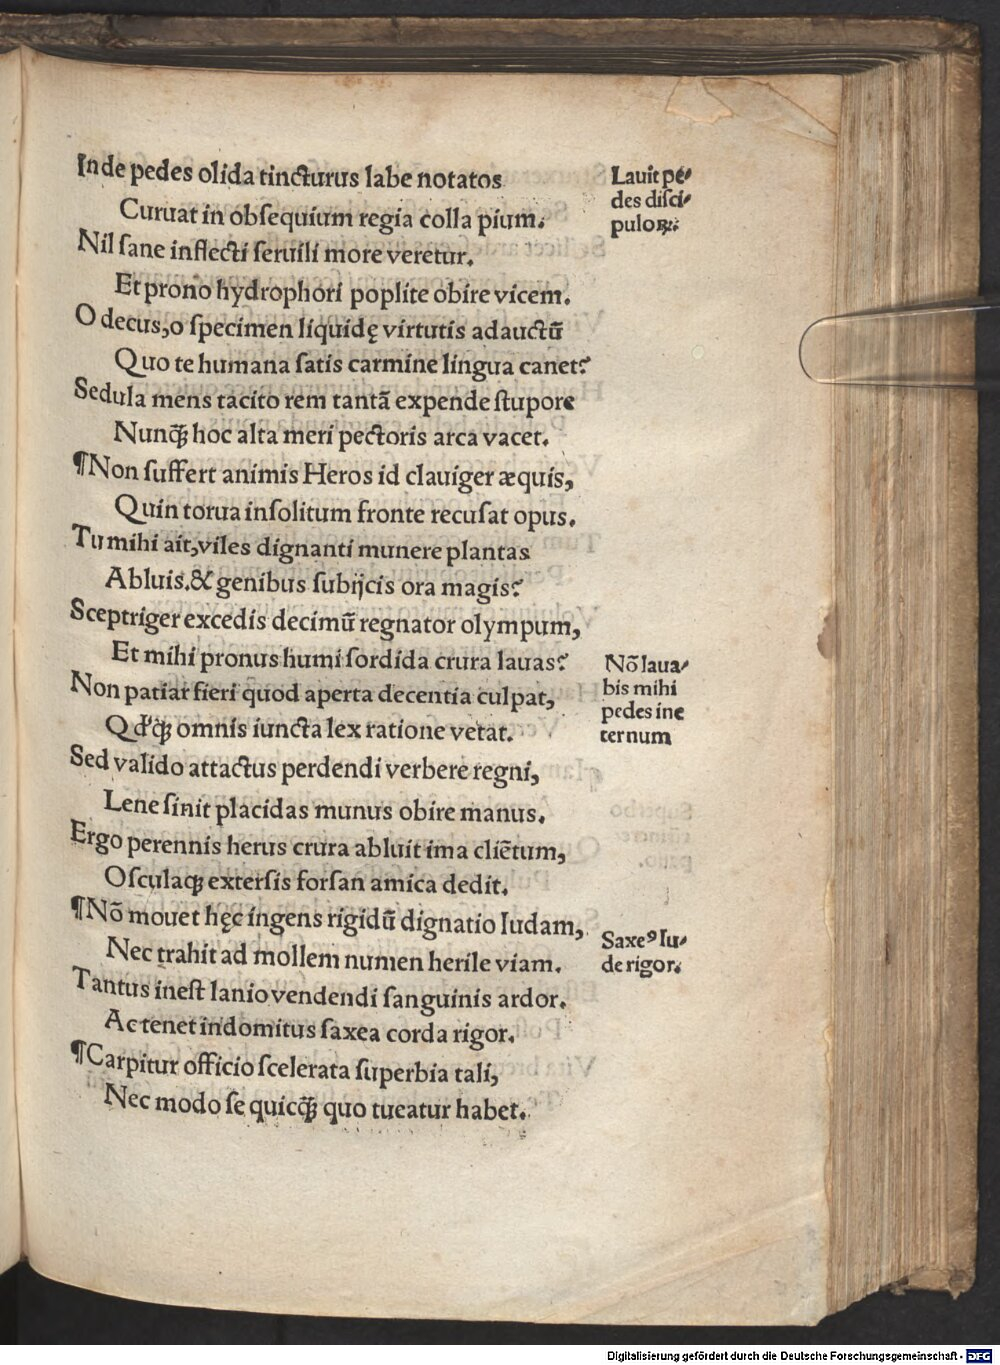 Inde pedes olida tincturus labe notatos
Curuat in obsequium regia colla pium.
Nil sane inflecti seruili more veretur.
Et prono hydrophori poplite obire vicem.
O decus,o specimen liquidę virtutis adauctū
Quo te humana satis carmine lingua canet?
Sedula mens tacito rem tantā expende stupore
Nunꝗ̄ hoc alta meri pectoris arca vacet.
¶Non suffert animis Heros id clauiger æquis,
Quin torua insolitum fronte recusat opus.
Tu mihi ait,viles dignanti munere plantas
Abluis.& genibus subijcis ora magis?
Sceptriger excedis decimū regnator olympum,
Et mihi pronus humi sordida crura lauas?
Non patiar fieri quod aperta decentia culpat,
Qd'ꝙ omnis iuncta lex ratione vetat.
Sed valido attactus perdendi verbere regni,
Lene sinit placidas munus obire manus.
Ergo perennis herus crura abluit ima cliētum,
Osculaꝙ extersis forsan amica dedit.
¶Nō mouet hęc ingens rigidū dignatio Iudam,
Nec trahit ad mollem numen herile viam.
Tantus inest lanio vendendi sanguinis ardor.
Ac tenet indomitus saxea corda rigor.
¶Carpitur officio scelerata superbia tali,
Nec modo se quicꝗ̄ quo tueatur habet.
Lauit pe⸗
des disci⸗
puloꝝ.
Nō laua⸗
bis mihi
pedes in e
ternum
Saxeꝰ Iu⸗
de rigor.
Digitalisierung gefördert durch die Deutsche Forschungsgemeinschaft - DFG